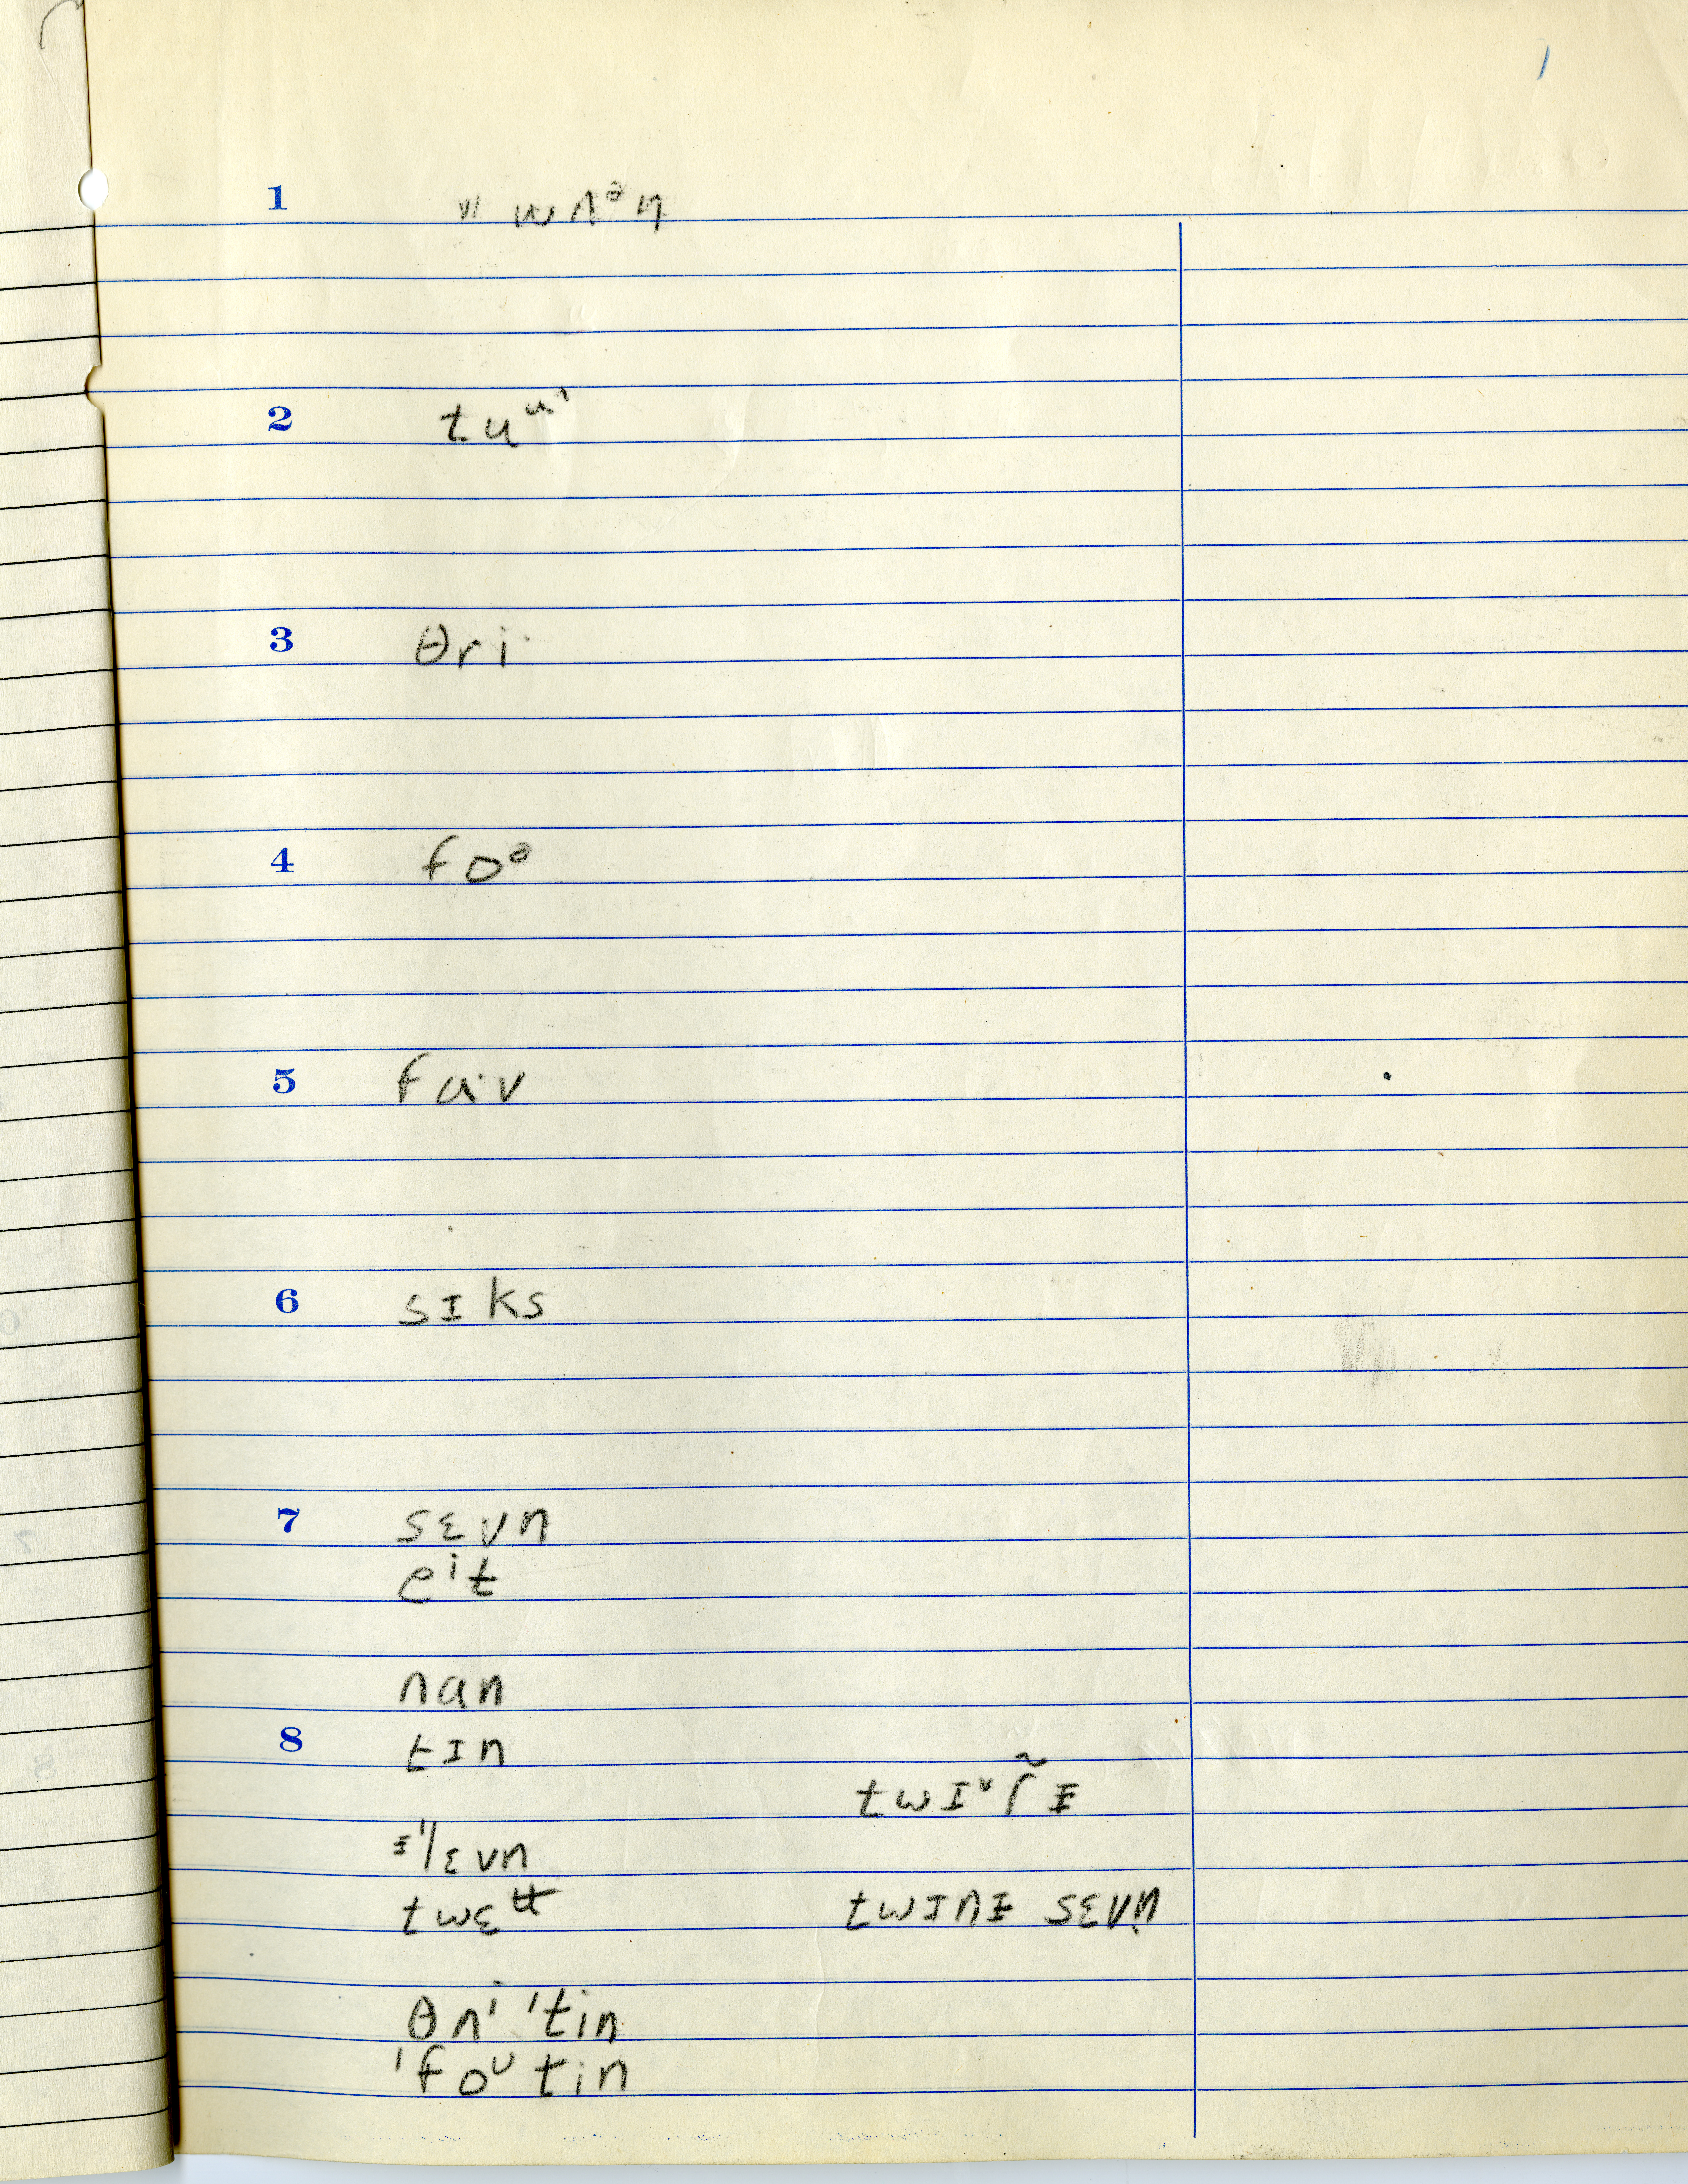 1
1 " wʌᵊn
2 tuᵘ'
3 θri·
4 foᵊ
5 fa·v
6 sɪks
7 sɛvn
eⁱt
nan
8 tɪn
twɪᵛɾ̃ᵻ
ᵻ'lɛvn
twɛ twɪnᵻ sɛvn
θʌⁱ 'tin
'foᵘtin